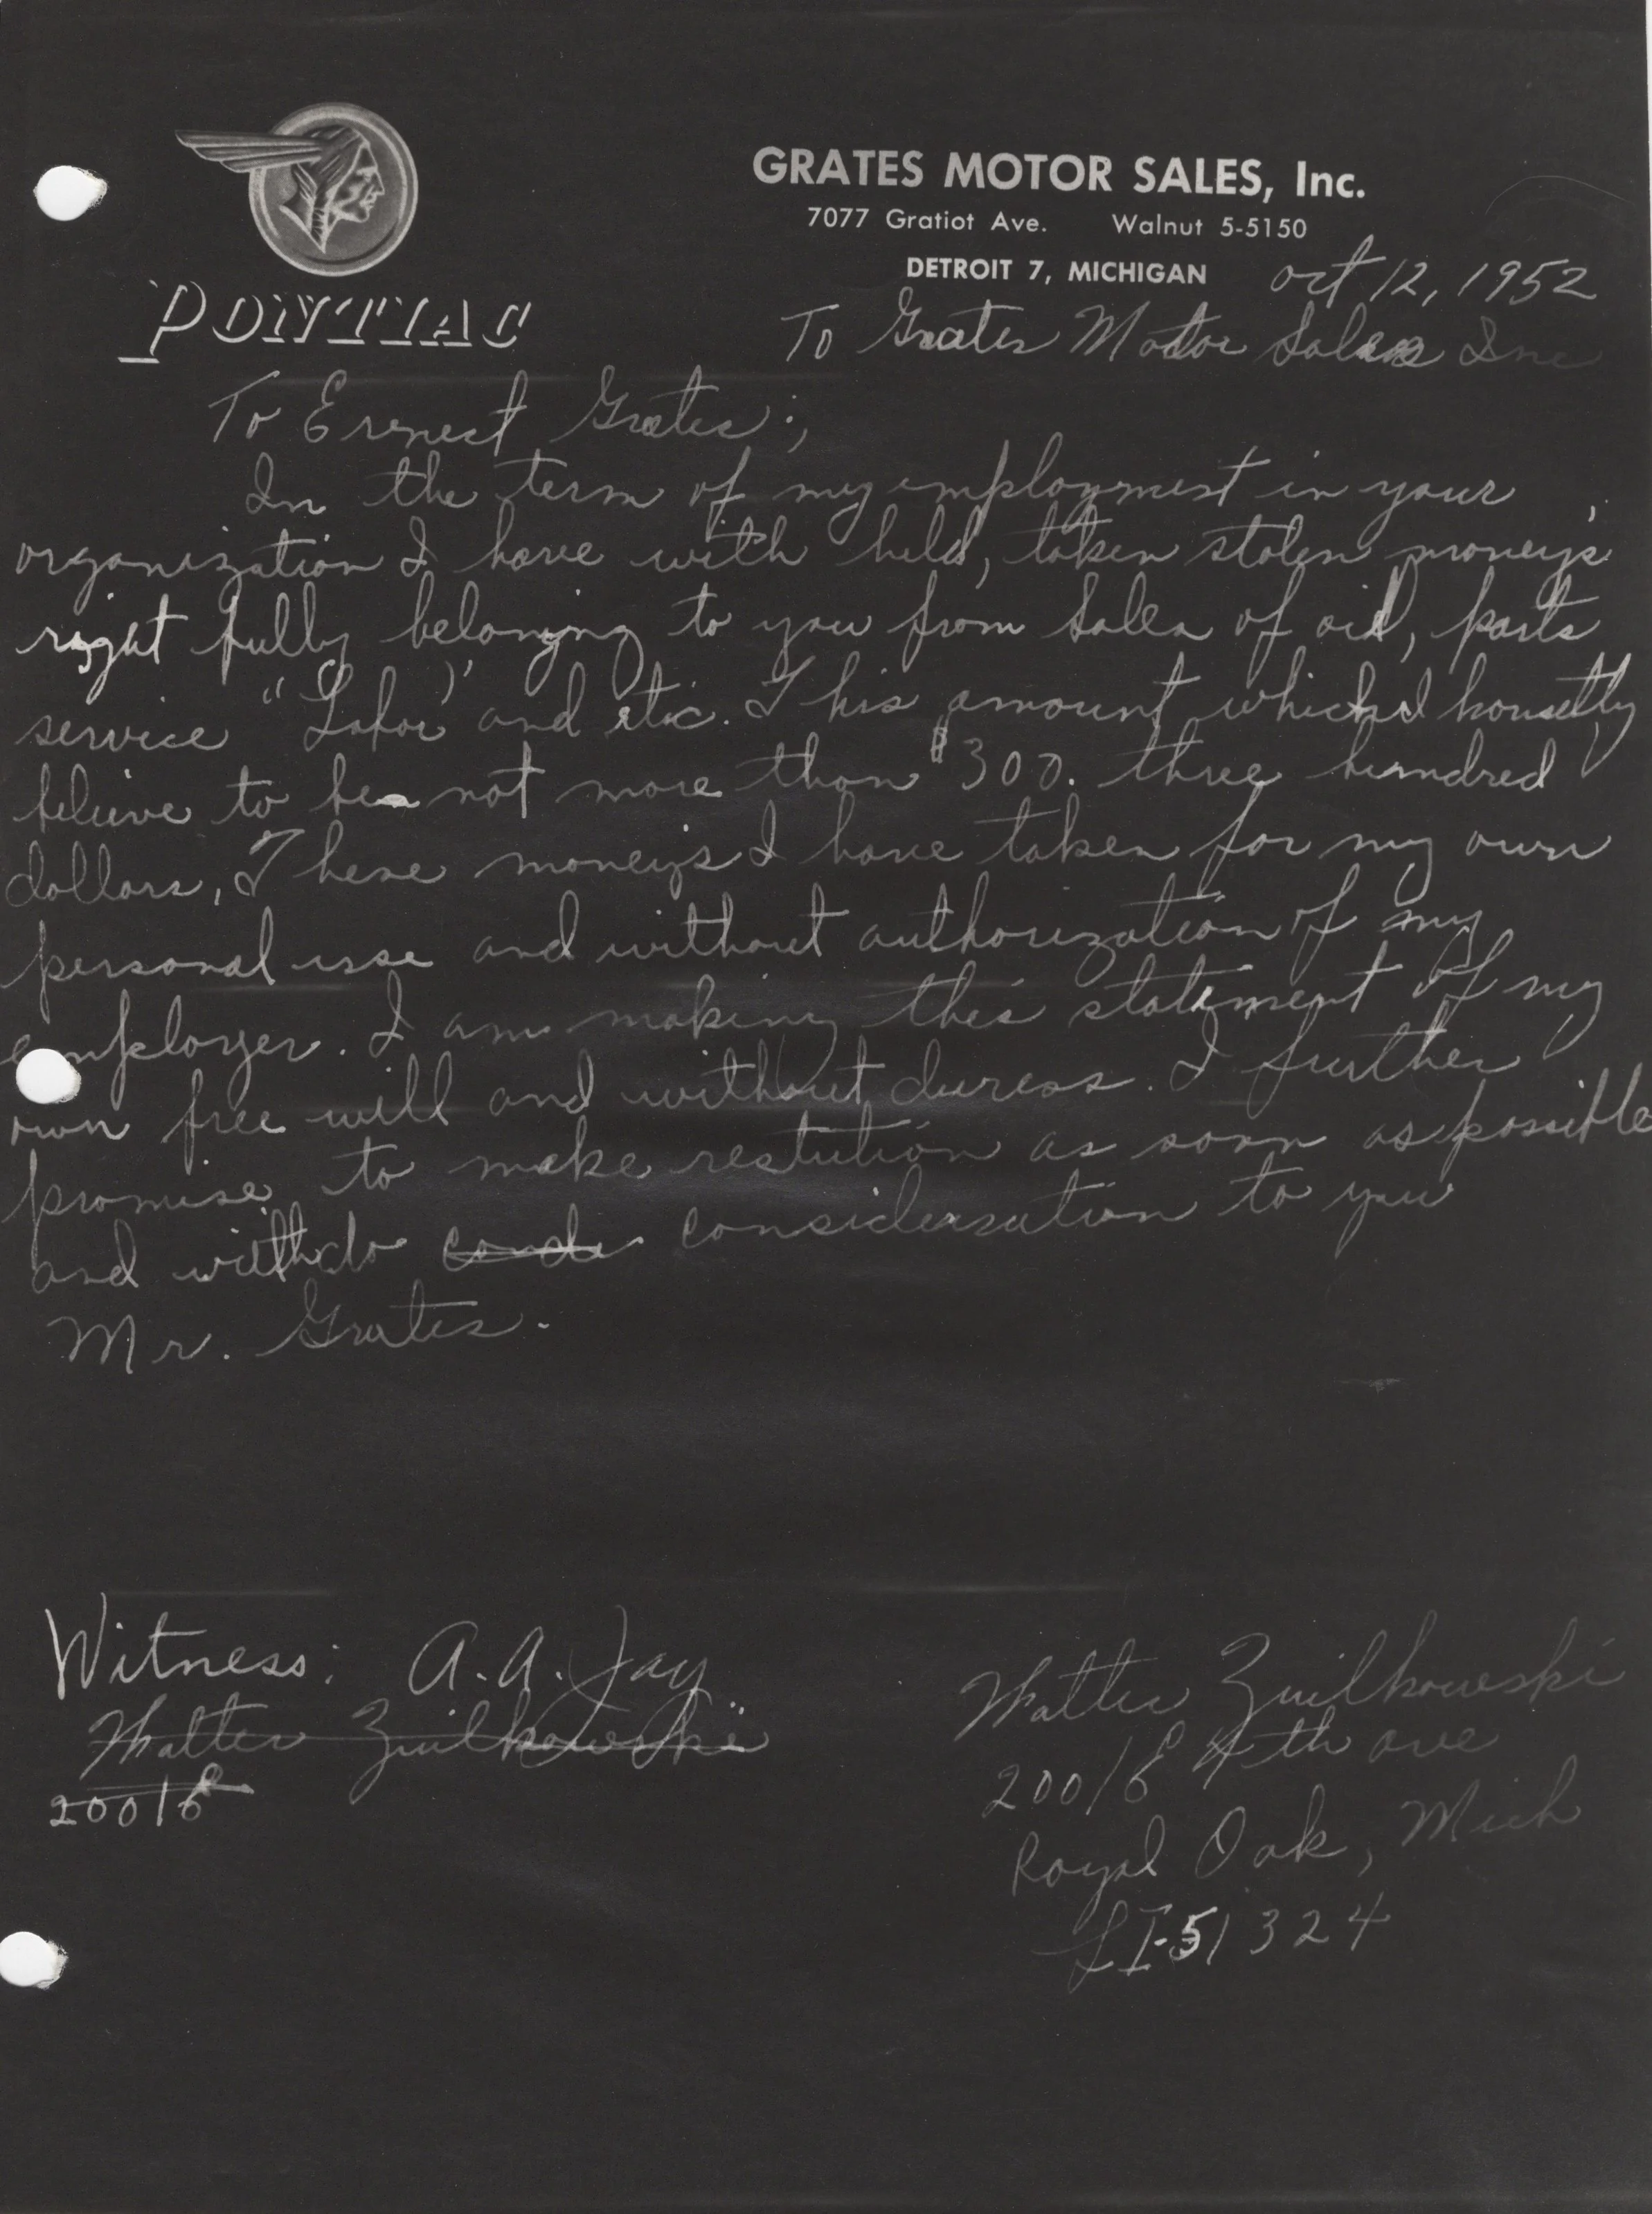 GRATES MOTOR SALES, Inc.
7077 Gratiot Ave. Walnut 5-5150
DETROIT 7, MICHIGAN oct 12, 1952
PONTIAC
To Grates Motor Sales Inc
To Erenest Grates;
In the term of my employment in your
organization I have with held, taken stolen moneys
right fully belonging to you from sales of oil, parts
service "Labor" and etc. This amount which I honsetly
believe to be not more than $300. three hundred
dollars, These moneys I have taken for my own
personal use and without authorization of my
employer. I am making this statement of my
own free will and without duress. I further
promise to make restution as soon as possible
and with do consideration to you
Mr. Grates.
Witness: A. A. Jay
Walter Zuilkowski
20016
Walter Zuilkowski
20016 4th ave
Royal Oak, Mich
LI-51324